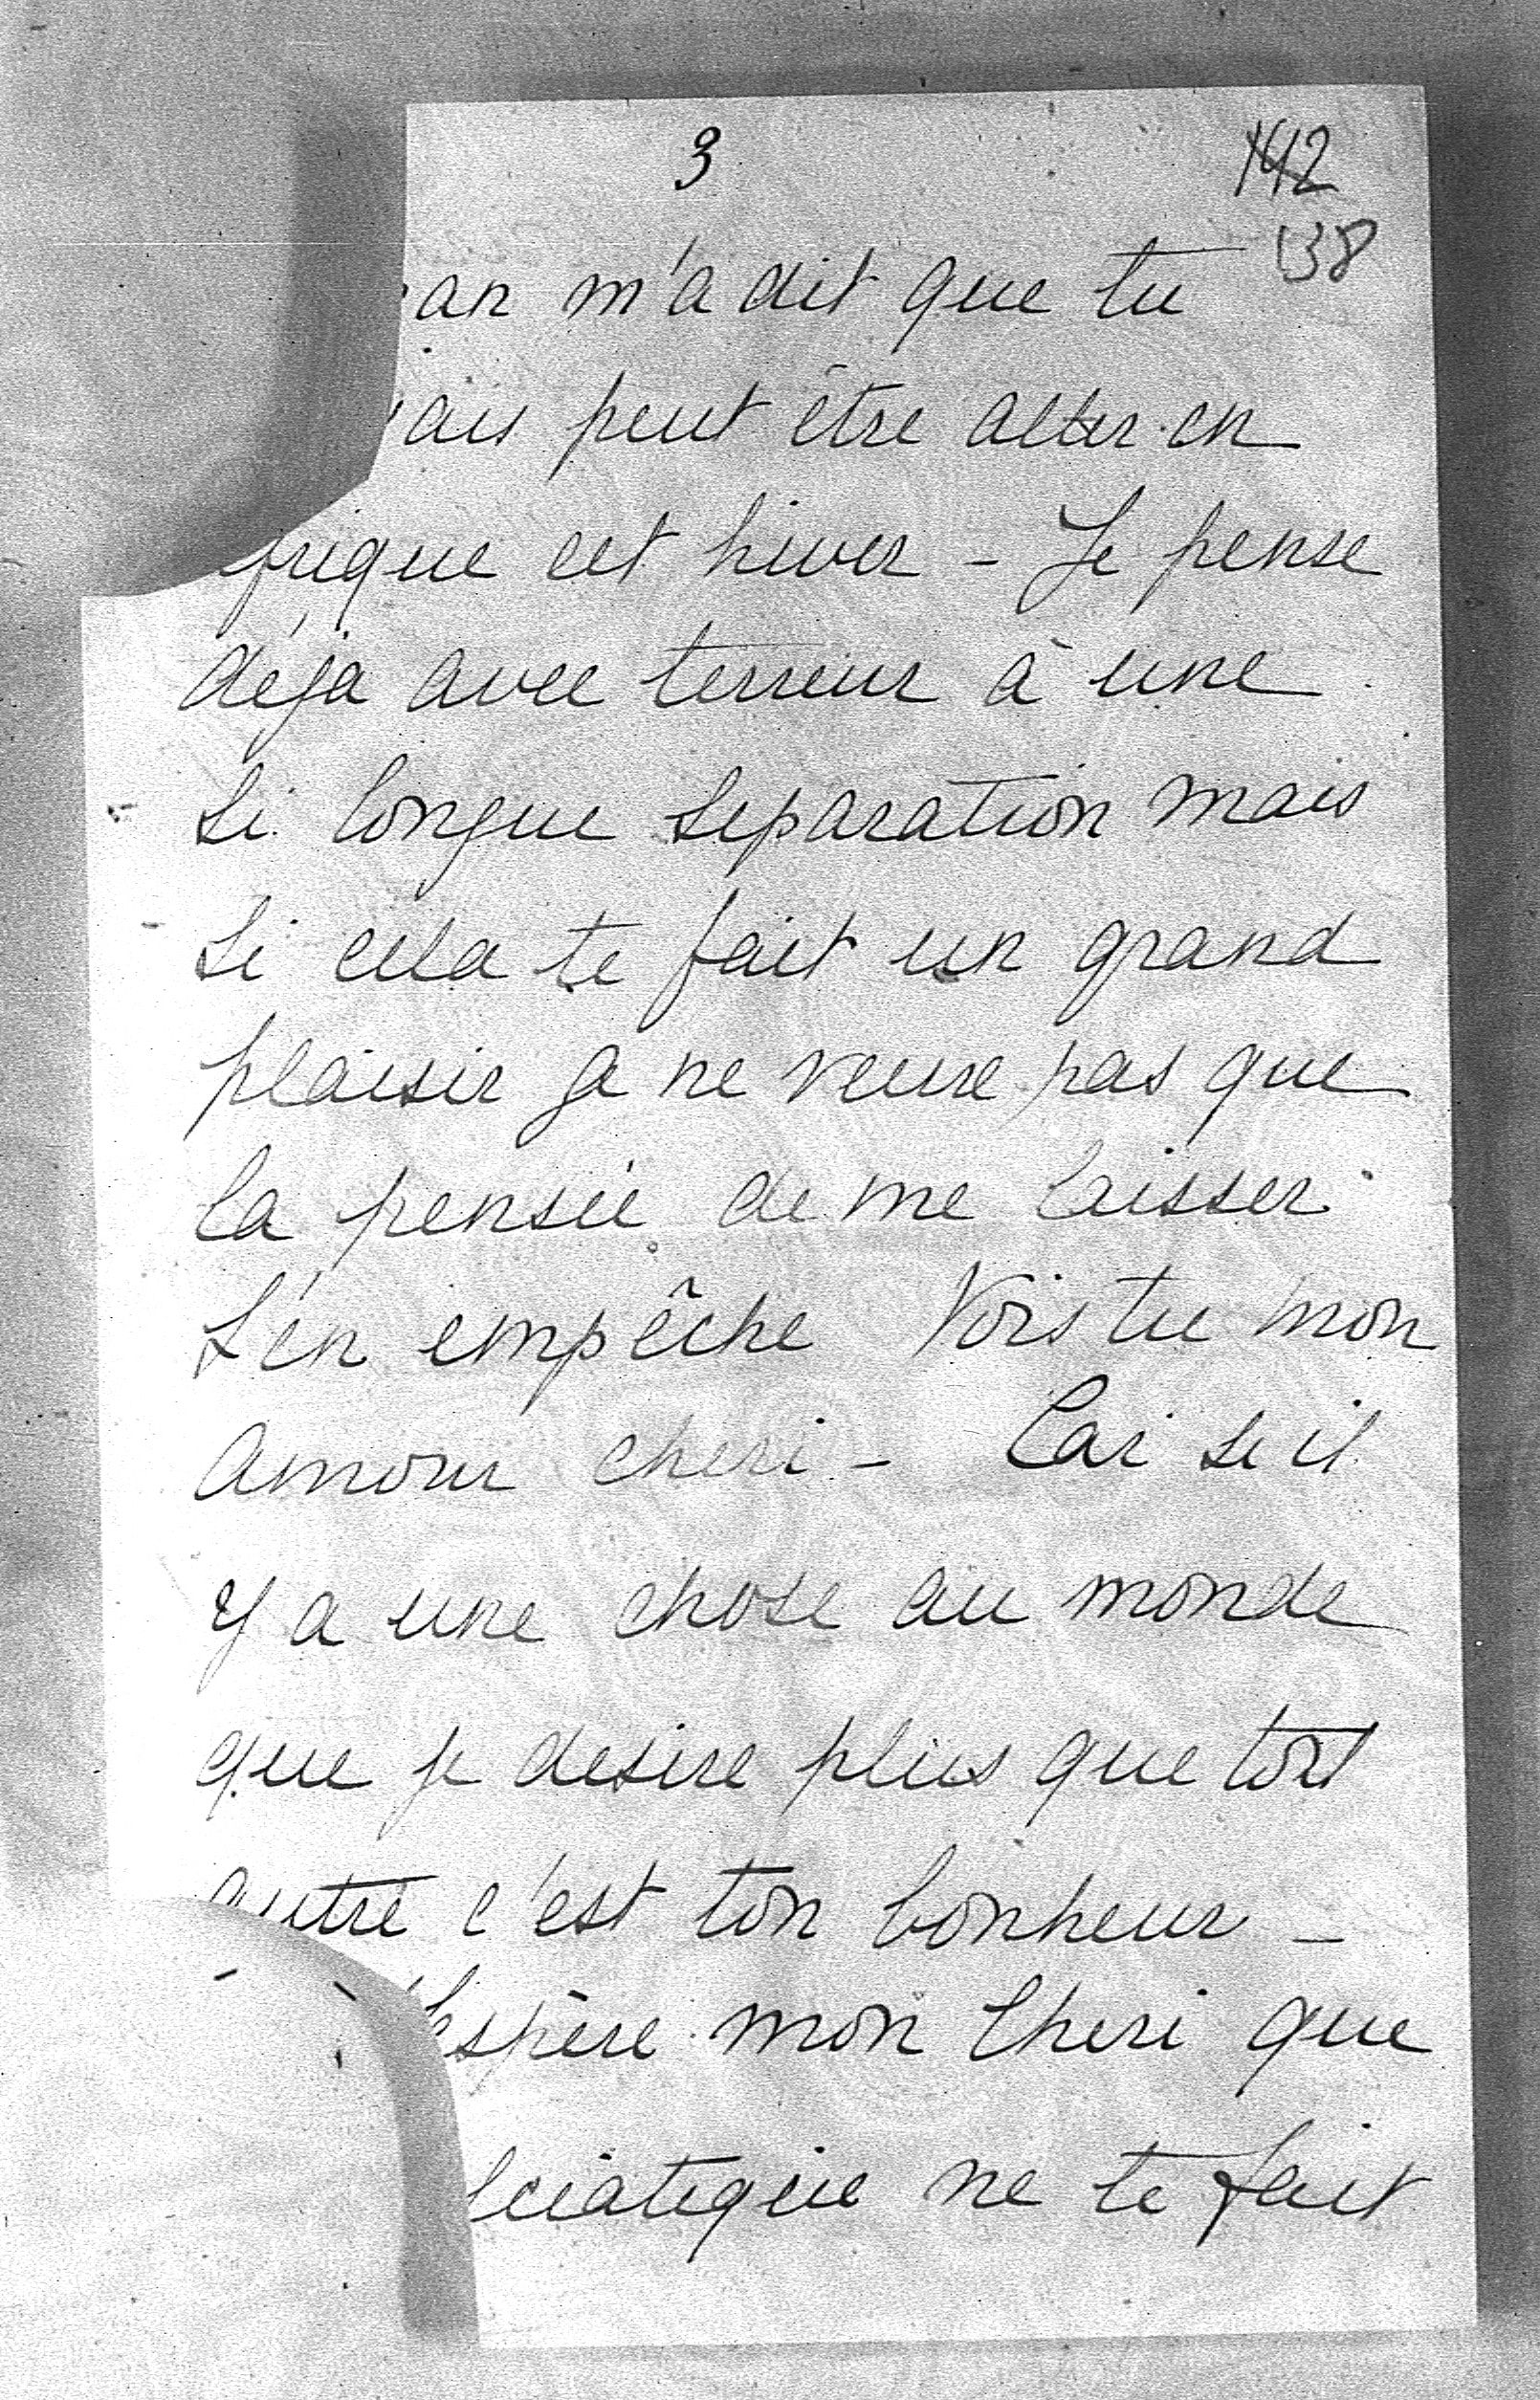 3
142
138
an m'a dit que tu
ais peut être aller en
frique cet hiver - Je pense
déjà avec terreur à une
si longue separation mais
si cela te fait un grand
plaisir je ne veux pas que
la pensée de me laisser
t'en empêche Vois tu mon
amour cheri - Car si il
y a une chose au monde
que je desire plus que tout
autre c'est ton bonheur -
espère mon cheri que
sciatique ne te fait